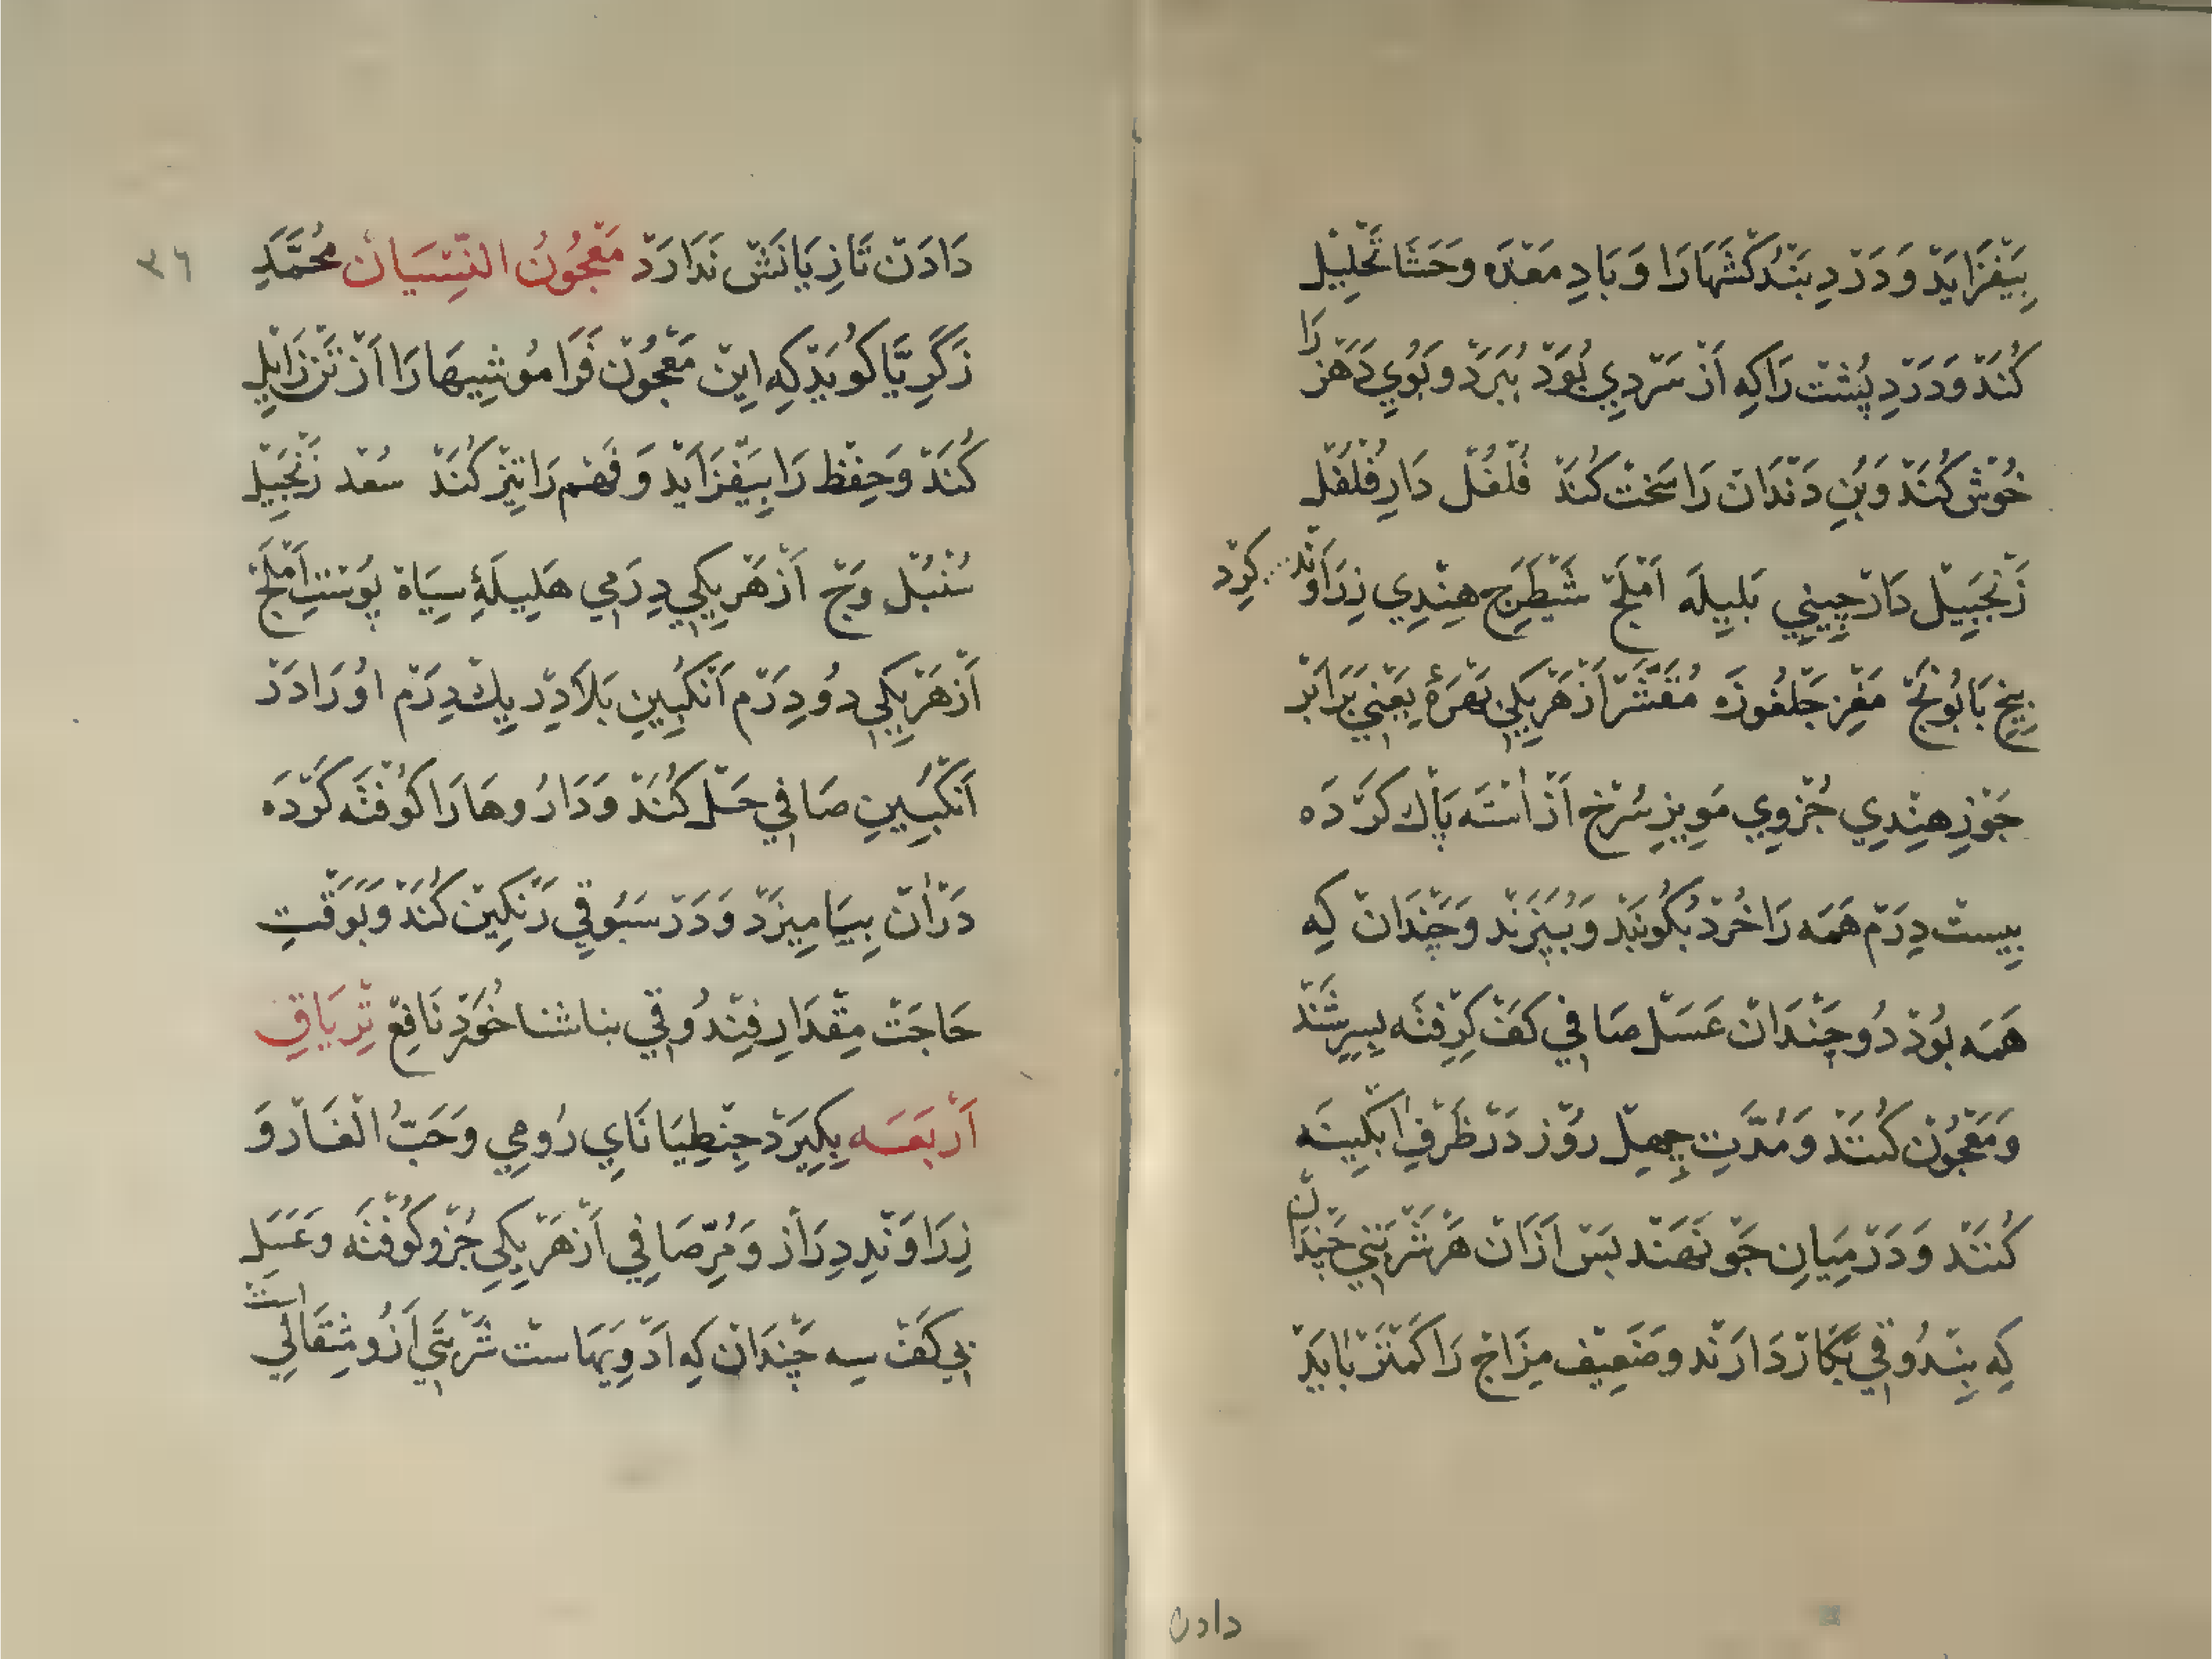 بِيَفْزَايَدْ وَدَرْدِ بَنْدُكَشَهَارَا وَبَادِ مَعْدَه وحَشَا تَحْلِيلْ
كُنَدْ وَدَرْدِ پُشْتْ رَاكِه اَزْ سَرْدِيِ بُوَدْ بُبَرَدْ وبُويِ دَهَنْ رَا
خُوْشْ كُنَدْ وَبُنِ دَنْدَانْ رَا سَخْتْ كُنَدْ فُلْفُلْ دَارِفُلْفُلْ
زَنْجَبِيلْ دَارْچِينِي بَلِيلَه اَمْلَجْ شَيْطَرَجِ هِنْدِي زِرَاوَنْدِ كِرْد
بِيخِ بَابُونَجْ مَغْزِ جَلْغُوزَه مُقَشَّرْ اَزْهَرْيِكِي بَهْرَهٔ يَعْنِي بَرَابَرْ
جَوْزِ هِنْدِي جُزْوِي مَوِيزِ سُرْخِ اَزْ اُسْتَه پَاكْ كَرْدَه
بِيسْتْ دِرَمْ هَمَه رَا خُرْدْ بُكُوبَنْدْ وَبُپَزَنْد وَچَنْدَانْ كِه
هَمَه بُوَدْ دُوچَنْدَانْ عَسَلْ صَافِي كَفْ كِرِفْتَه بِسِرِشَنْد
وَمَعْجُونْ كُنَنْدْ وَمُدَّتِ چِهِلْ رُوْزْ دَرْظَرْفِ اٰبْكِينَه
كُنَنْد وَدَرْمِيَانِ جَوْ نَهَنْد بَسْ اَزَانْ هَرْشَرْبَتِي چَنْدَانْ
كِه بِنْدُوقِي بَكَارْدَارَنْد وضَعِيفْ مِزَاجْ رَاكَمْتَرْ بَايَدْ
دادن
٣٦
دَادَنْ تَا زِيَانَشْ نَدَارَدْ مَعْجُونُ النِّسْيَانْ مُحَمَّدِ
زَكَرِيَّا كُويَدْكِه اِينْ مَعْجُونْ فَرَامُوشِيهَا رَا اَزْتَنْ زَايِلْ
كُنَدْ وَحِفْظ رَا بِيَفْزَايَدْ وَفَهْم رَا تِيزْ كُنَدْ سُعْد زَنْجَبِيلْ
سُنْبُلْ وَجْ اَزْهَرْيِكِي دِرَمِي هَلِيلَهٔ سِيَاهْ پُوسْتِ اَمْلَجْ
اَزْهَرْيِكِي دُودِرَمْ اَنْكُبِينِ بَلَادِرْ يِكْ دِرَمْ اوُرَا دَرْ
اَنْكُبِينِ صَافِي حَلْ كُنَدْ وَدَارُوهَا رَا كُوفْتَه كَرْدَه
دَرْاٰنْ بِيَامِيزَدْ وَدَرْسَبُوقِي رَنْكِينْ كُنَدْ وَبَوَقْتِ
حَاجَتْ مِقْدَارِ فِنْدُوقِي بناشنا خُوَرْد نَافِعْ تِرْيَاقِ
اَرْبَعَه بِكِيرَدْ جِنْطِيَانَايِ رُومِي وَحَبُّ الْغَارْ وَ
زِرَاوَنْدِ دِرَازْ وَمُرِّ صَافِي اَزْهَرْيِكِي جُزْو كُوفْتَه وعَسَل
بِي كَفْ سِه چَنْدَانْ كِه اَدْوِيَهَاسْت شَرْبَتِي اَزُو مِثْقَالِي اسْت